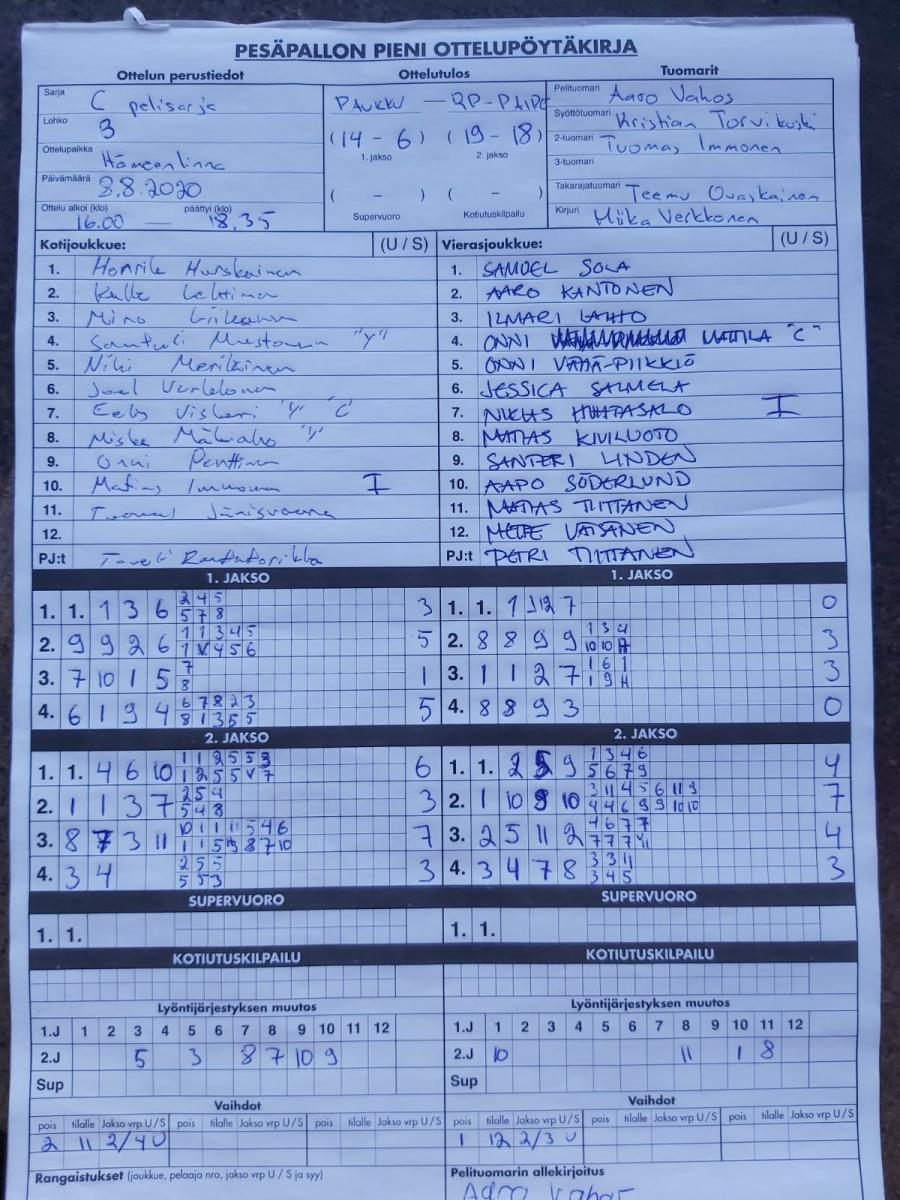 PESÄPALLON PIENI OTTELUPÖYTÄKIRJA
Ottelun perustiedot Ottelutulos Tuomarit
Sarja C pelisarja
Lohko 3
Ottelupaikka Hämeenlinna
Päivämäärä 8.8.2020
Ottelu alkoi (klo) päättyi (klo)
16.00 — 18.35
PAUKKU — RP-PAIPE
(14 - 6) (19 - 18)
1. jakso 2. jakso
( - ) ( - )
Supervuoro Kotiutuskilpailu
Pelituomari Aaro Vahos
Syöttötuomari Kristian Torvikoski
2-tuomari Tuomas Immonen
3-tuomari
Takarajatuomari Teemu Ovaskainen
Kirjuri Miika Verkkonen
Kotijoukkue: (U / S)
1. Hurskainen
2. Kalle Lehtinen
3.
4. "Y"
5. Niki Meriläinen
6. Joel
7. "Y" "C"
8. "Y"
9. Onni Penttinen
10. Matias Immonen I
11.
12.
PJ:t
Vierasjoukkue: (U / S)
1. SAMUEL SOLA
2. AARO KANTONEN
3. ILMARI LAHTO
4. ONNI MATTILA "C"
5. ONNI VÄHÄ-PIIKKIÖ
6. JESSICA SALMELA
7. NIKLAS HUHTASALO I
8. MATIAS KIVILUOTO
9. SANTERI LINDEN
10. AAPO SÖDERLUND
11. MATIAS TIITTANEN
12. VÄISÄNEN
PJ:t PETRI TIITTANEN
1. JAKSO
1. 1. 1 3 6 2 4 5 3
5 7 8
2. 9 9 2 6 1 1 3 4 5 5
1 4 5 6
3. 7 10 1 5 7 1
8
4. 6 1 9 4 6 7 8 2 3 5
8 1 3 5 5
1. JAKSO
1. 1. 1 7 0
2. 8 8 9 9 1 3 4 3
10 10
3. 1 1 2 7 1 6 1 3
1 9
4. 8 8 9 3 0
2. JAKSO
1. 1. 4 6 10 1 1 2 5 5 3 6
1 2 5 5 7
2. 1 1 3 7 2 5 4 3
5 4 8
3. 8 7 3 11 10 1 1 11 5 4 6 7
1 1 5 8 7 10
4. 3 4 2 5 5 3
5 5 3
2. JAKSO
1. 1. 2 5 9 1 3 4 6 4
5 6 7 9
2. 1 10 9 10 3 11 4 5 6 11 3 7
4 4 6 9 9 10 10
3. 2 5 11 2 4 6 7 7 4
7 7 7 11
4. 3 4 7 8 3 3 11 3
3 4 5
SUPERVUORO
1. 1.
SUPERVUORO
1. 1.
KOTIUTUSKILPAILU
KOTIUTUSKILPAILU
Lyöntijärjestyksen muutos
1.J 1 2 3 4 5 6 7 8 9 10 11 12
2.J 5 3 8 7 10 9
Sup
Lyöntijärjestyksen muutos
1.J 1 2 3 4 5 6 7 8 9 10 11 12
2.J 10 11 1 8
Sup
Vaihdot
pois tilalle Jakso vrp U / S pois tilalle Jakso vrp U / S pois tilalle Jakso vrp U / S
2 11 2/4 U
Vaihdot
pois tilalle Jakso vrp U / S pois tilalle Jakso vrp U / S pois tilalle Jakso vrp U / S
1 12 2/3 U
Rangaistukset (joukkue, pelaaja nro, jakso vrp U / S ja syy)
Pelituomarin allekirjoitus
Aaro Vahos